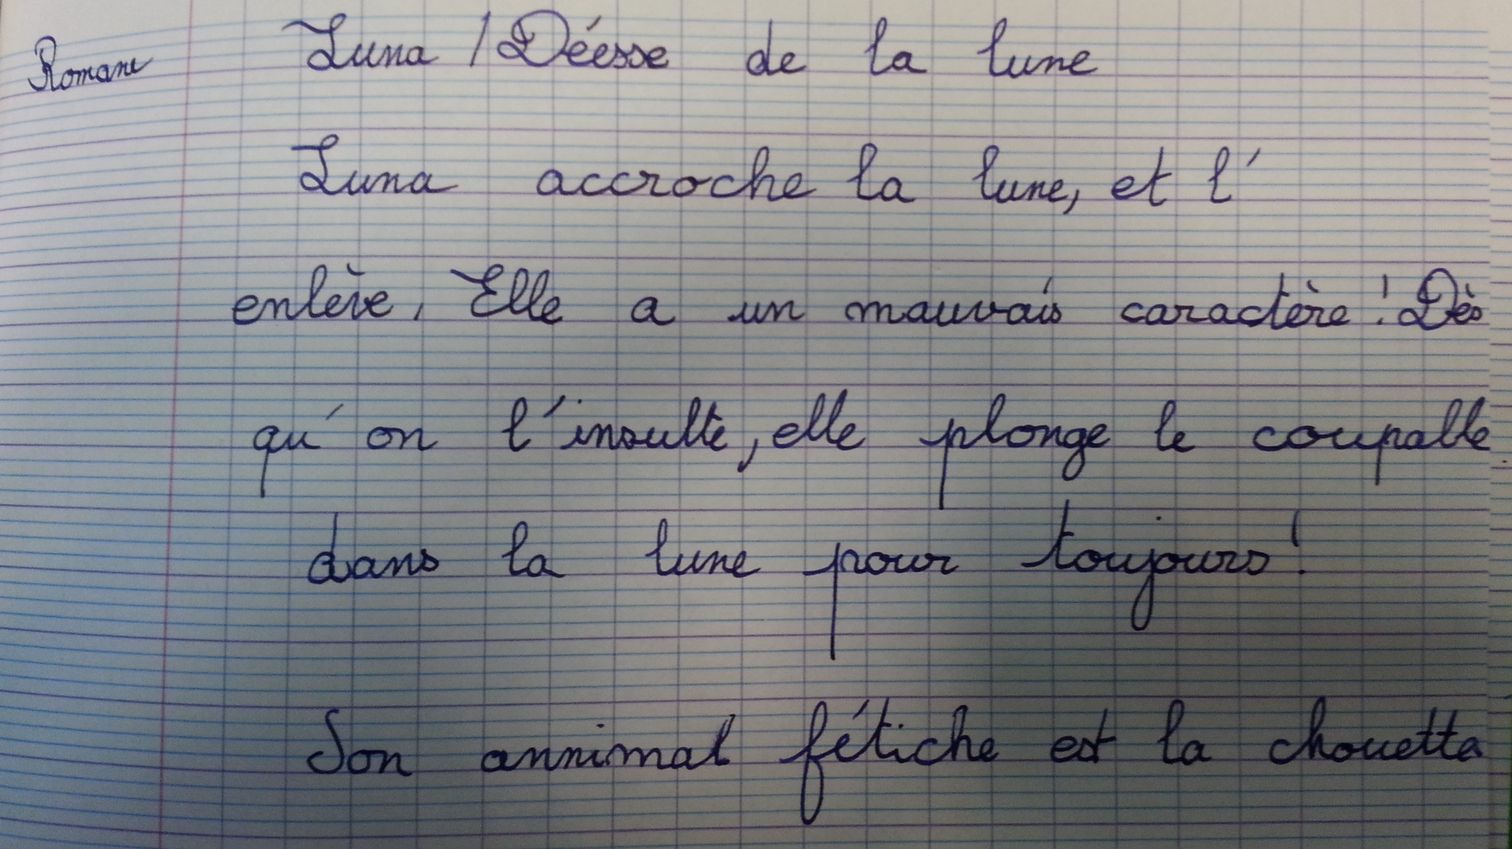 Romane
Luna / Déesse de la lune
Luna accroche la lune, et l'
enlève. Elle a un mauvais caractère ! Dès
qu'on l'insulte, elle plonge le coupable
dans la lune pour toujours !
Son annimal fétiche est la chouette